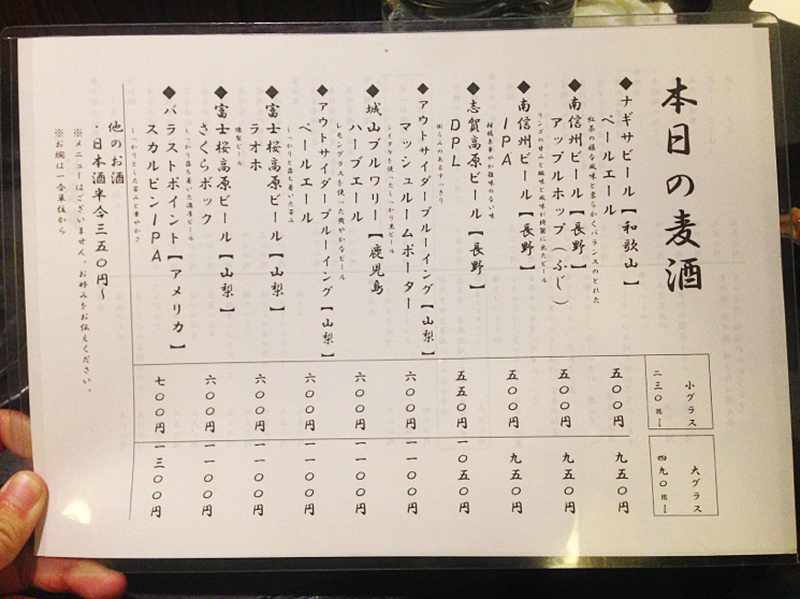 本日の麦酒
小グラス
二三〇ml
大グラス
四九〇ml
◆ナギサビール【和歌山】
ペールエール
紅茶の様な風味と柔らかくバランスのとれた
五〇〇円
九五〇円
◆南信州ビール【長野】
アップルホップ（ふじ）
リンゴの甘みと酸味と風味が綺麗に出たビール
五〇〇円
九五〇円
◆南信州ビール【長野】
IPA
柑橘系華やか雑味のない味
五〇〇円
九五〇円
◆志賀高原ビール【長野】
DPL
五五〇円
一〇五〇円
◆アウトサイダーブルーイング【山梨】
マッシュルームポーター
シイタケを使ったしっかり黒ビール
六〇〇円
一一〇〇円
◆城山ブルワリー【鹿児島】
ハーブエール
レモングラスを使った爽やかなビール
六〇〇円
一一〇〇円
◆アウトサイダーブルーイング【山梨】
ペールエール
しっかりと落ち着いた苦み
六〇〇円
一一〇〇円
◆富士桜高原ビール【山梨】
ラオホ
燻製ビール
六〇〇円
一一〇〇円
◆富士桜高原ビール【山梨】
さくらボック
しっかり落ち着いた濃厚ビール
六〇〇円
一一〇〇円
◆バラストポイント【アメリカ】
スカルピンIPA
しっかりとした苦みと華やかさ
七〇〇円
一三〇〇円
他のお酒
・日本酒半合三五〇円～
※メニューはございません。お好みをお伝えください。
※お燗は一合単位から